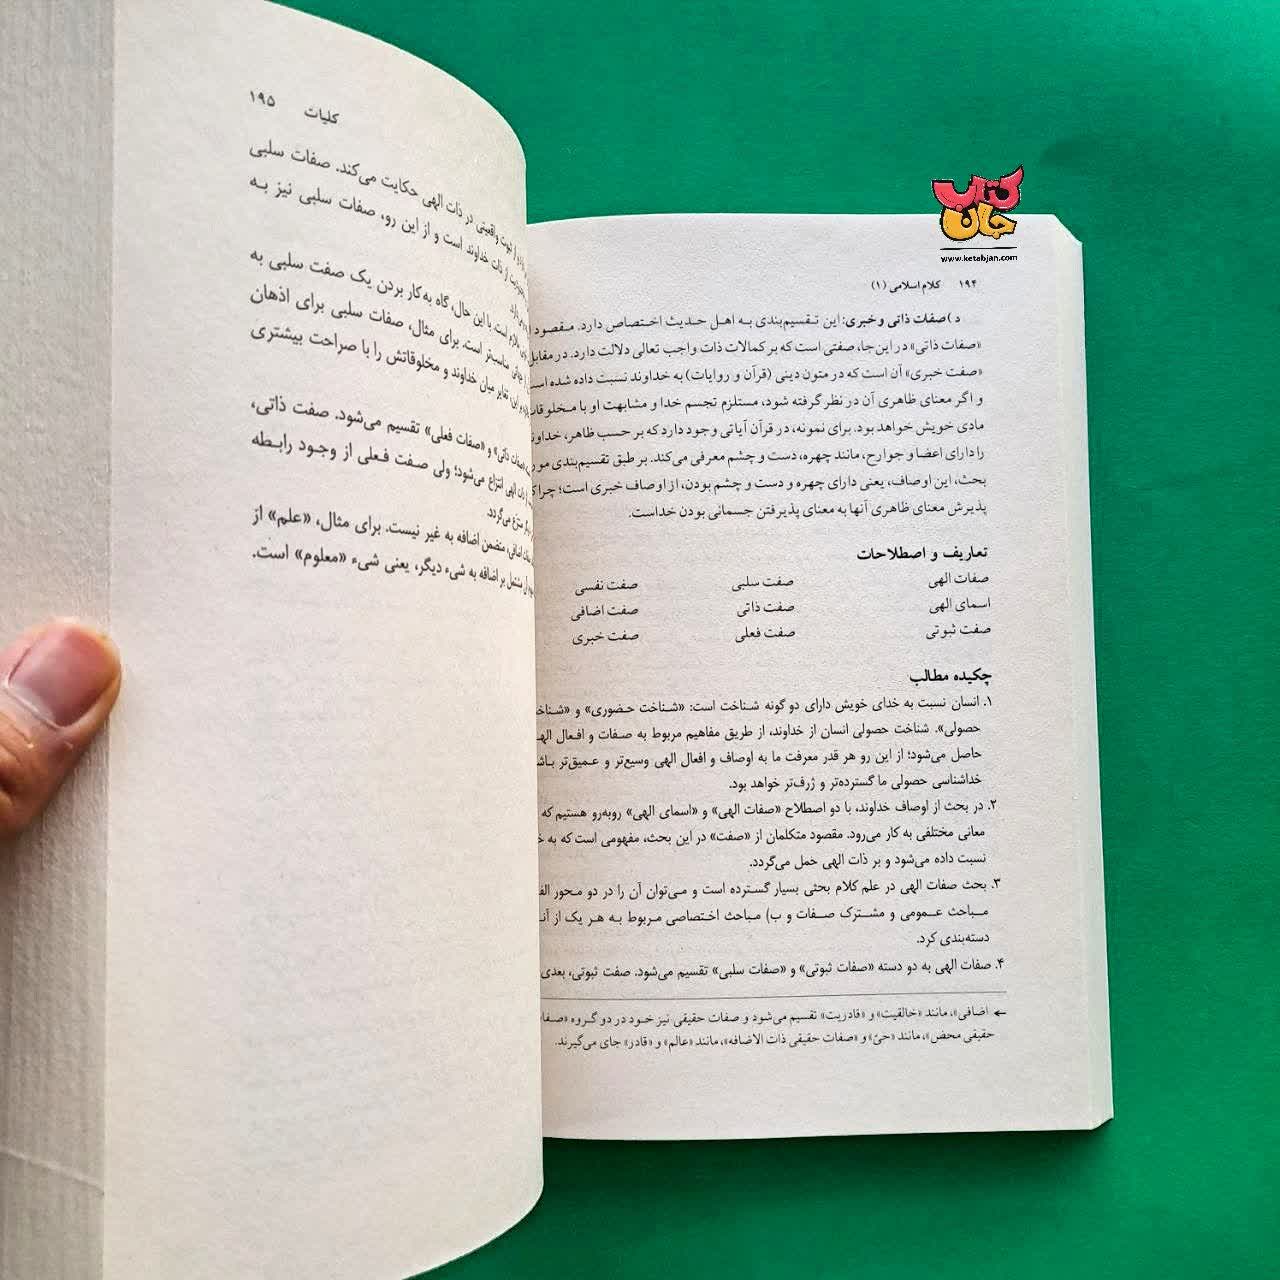 کتاب جان
www.ketabjan.com
۱۹۴ کلام اسلامی (۱)
د) صفات ذاتی و خبری: این تقسیم‌بندی به اهل حدیث اختصاص دارد. مقصود
«صفات ذاتی» در این‌جا، صفتی است که بر کمالات ذات واجب تعالی دلالت دارد. در مقابل
«صفت خبری» آن است که در متون دینی (قرآن و روایات) به خداوند نسبت داده شده
و اگر معنای ظاهری آن در نظر گرفته شود، مستلزم تجسم خدا و مشابهت او با
مادی خویش خواهد بود. برای نمونه، در قرآن آیاتی وجود دارد که بر حسب ظاهر،
را دارای اعضا و جوارح، مانند چهره، دست و چشم معرفی می‌کند. بر طبق تقسیم‌بندی
بحث، این اوصاف، یعنی دارای چهره و دست و چشم بودن، از اوصاف خبری است؛
پذیرش معنای ظاهری آنها به معنای پذیرفتن جسمانی بودن خداست.
تعاریف و اصطلاحات
صفات الهی صفت سلبی صفت نفسی
اسمای الهی صفت ذاتی صفت اضافی
صفت ثبوتی صفت فعلی صفت خبری
چکیده مطالب
۱. انسان نسبت به خدای خویش دارای دو گونه شناخت است: «شناخت حضوری» و
حصولی». شناخت حصولی انسان از خداوند، از طریق مفاهیم مربوط به صفات و افعال
حاصل می‌شود؛ از این رو هر قدر معرفت ما به اوصاف و افعال الهی وسیع‌تر و عمیق‌تر
خداشناسی حصولی ما گسترده‌تر و ژرف‌تر خواهد بود.
۲. در بحث از اوصاف خداوند، با دو اصطلاح «صفات الهی» و «اسمای الهی» روبه‌رو هستیم که
معانی مختلفی به کار می‌رود. مقصود متکلمان از «صفت» در این بحث، مفهومی است که به
نسبت داده می‌شود و بر ذات الهی حمل می‌گردد.
۳. بحث صفات الهی در علم کلام بحثی بسیار گسترده است و می‌توان آن را در دو محور
مباحث عمومی و مشترک صفات و ب) مباحث اختصاصی مربوط به هر یک از
دسته‌بندی کرد.
۴. صفات الهی به دو دسته «صفات ثبوتی» و «صفات سلبی» تقسیم می‌شود. صفت ثبوتی، بعدی
← اضافی»، مانند «خالقیت» و «قادریت» تقسیم می‌شود و صفات حقیقی نیز خود در دو گروه
حقیقی محض»، مانند «حیّ» و «صفات حقیقی ذات الاضافه»، مانند «عالم» و «قادر» جای می‌گیرند.
کلیات ۱۹۵
از ثبوت واقعیتی در ذات الهی حکایت می‌کند. صفات سلبی
از ذات خداوند است و از این رو، صفات سلبی نیز به
است. با این حال، گاه به‌کار بردن یک صفت سلبی به
مناسب‌تر است. برای مثال، صفات سلبی برای اذهان
تغایر میان خداوند و مخلوقاتش را با صراحت بیشتری
«صفات ذاتی» و «صفات فعلی» تقسیم می‌شود. صفت ذاتی،
ذات الهی انتزاع می‌شود؛ ولی صفت فعلی از وجود رابطه
منتزع می‌گردد.
متضمن اضافه به غیر نیست. برای مثال، «علم» از
مشتمل بر اضافه به شیء دیگر، یعنی شیء «معلوم» است.